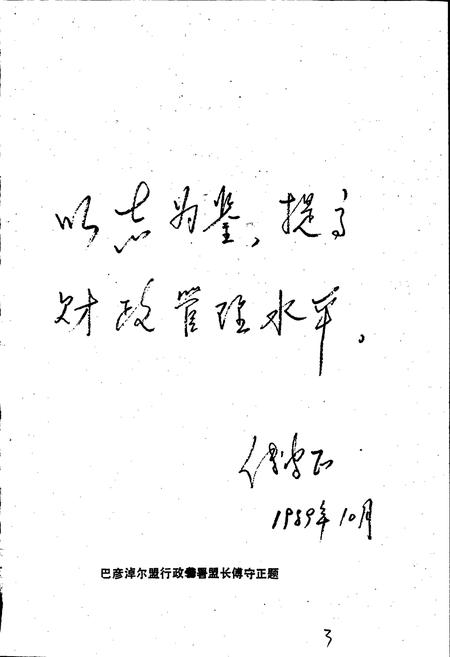 以志为鉴、提高
财政管理水平。
傅守正
1989年10月
巴彦淖尔盟行政公署盟长傅守正题
3